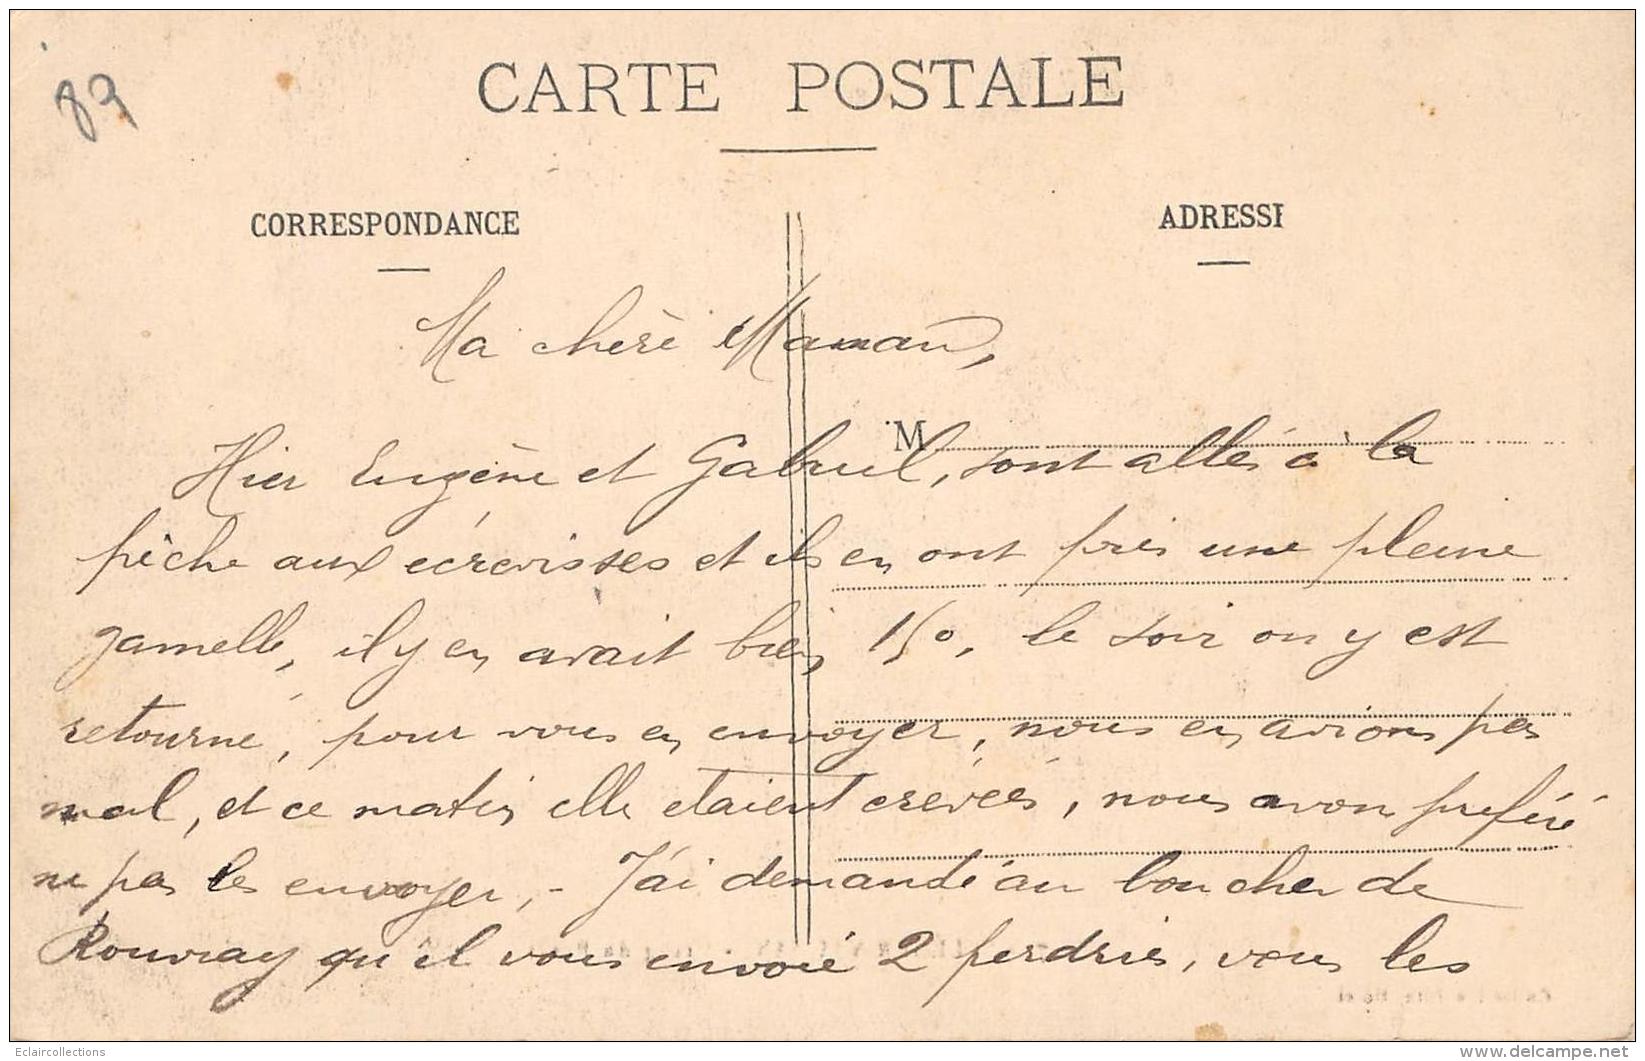 89
CARTE POSTALE
CORRESPONDANCE
ADRESSE
Ma chère Maman,
M
Hier Eugène et Gabriel, sont allés à la
pêche aux écrevisses et ils en ont pris une pleine
gamelle, il y en avait bien 150, le soir on y est
retourné, pour vous en envoyer, nous en avions pas
mal, et ce matin elle etaient crevées, nous avons préféré
ne pas les envoyer, - J'ai demandé au boucher de
Rouvray qu'il vous envoie 2 perdrix, vous les
Eclaircollections
delcampe.net